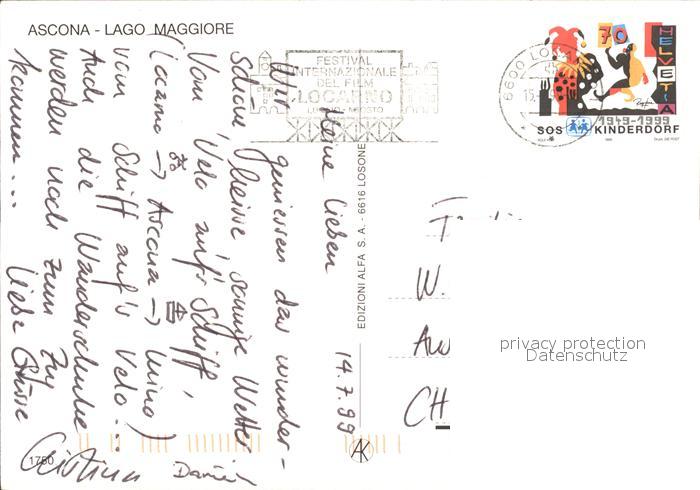 ASCONA - LAGO MAGGIORE
FESTIVAL
INTERNAZIONALE
DEL FILM
LOCARNO
LUGLIO - AGOSTO
6600 LO
15.
70
HELVETIA
1949-1999
SOS KINDERDORF
EDIZIONI ALFA S. A. - 6616 LOSONE
14.7.99
Meine lieben
Wir geniessen das wunder-
schöne, heisse, sonnige Wetter
Vom Velo auf's Schiff,
(Locarno → Ascona → Luino)
vom Schiff auf's Velo...
Auch die Wanderschuhe
werden noch zum Zug
kommen...
Liebe Grüsse
Christina Daniel
W.
CH
privacy protection
Datenschutz
AK
1750